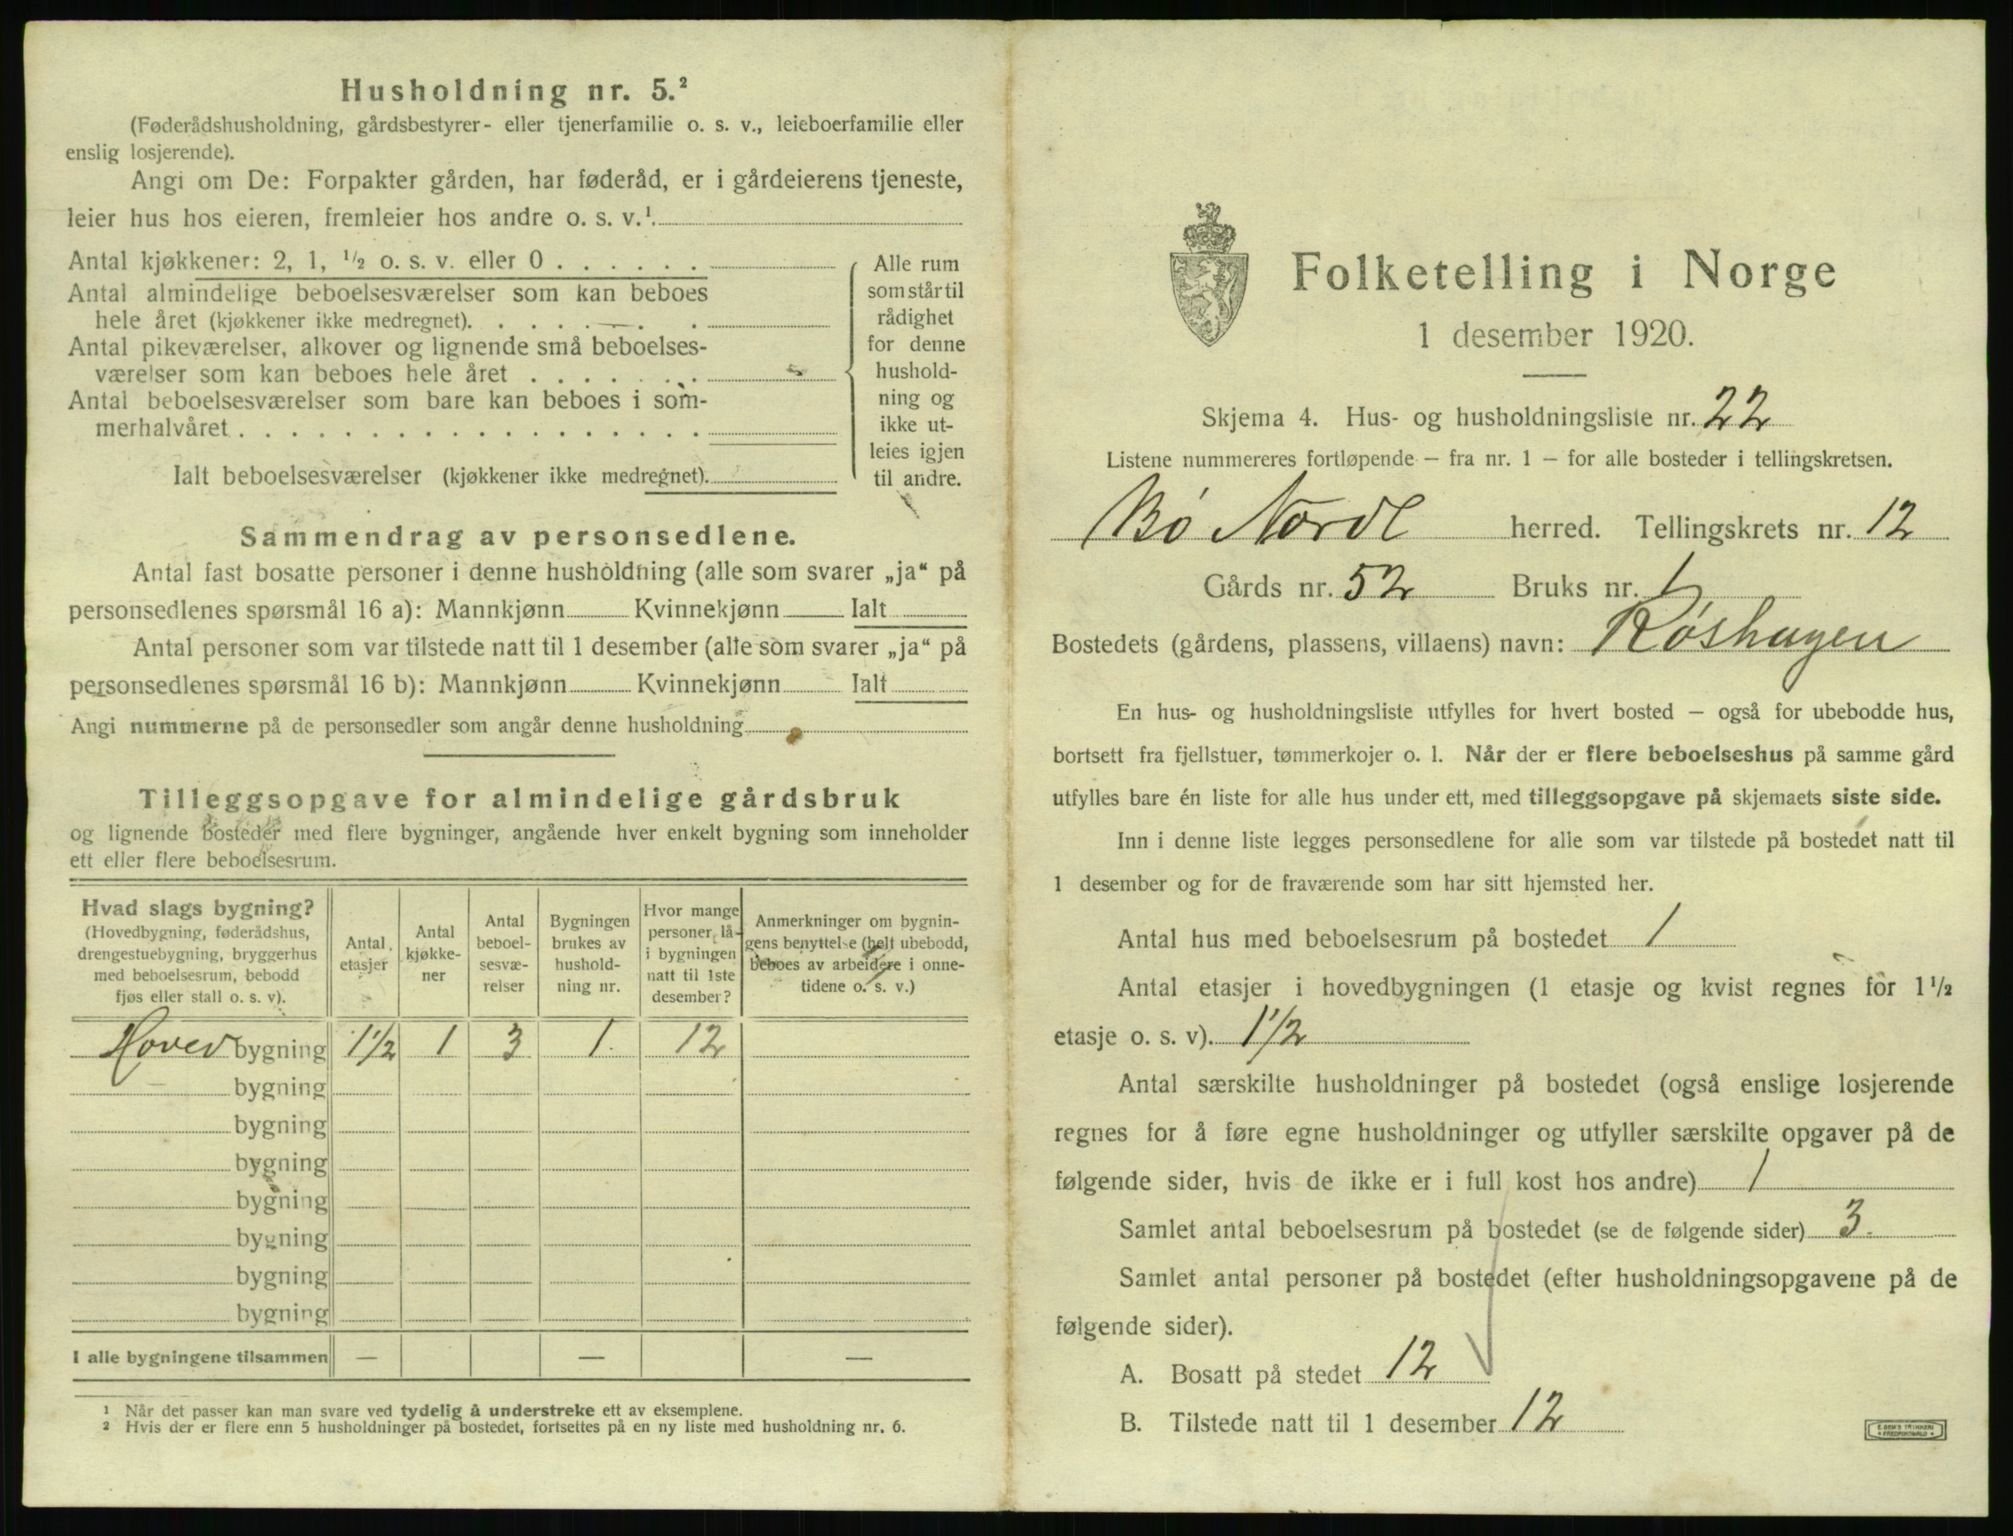 Husholdning nr. 5.²
(Føderådshusholdning, gårdsbestyrer- eller tjenerfamilie o. s. v., leieboerfamilie eller
enslig losjerende).
Angi om De: Forpakter gården, har føderåd, er i gårdeierens tjeneste,
leier hus hos eieren, fremleier hos andre o. s. v.¹
Antal kjøkkener: 2, 1, ½ o. s. v. eller 0 . . . . . .
Antal almindelige beboelsesværelser som kan beboes
hele året (kjøkkener ikke medregnet). . . . . . . .
Antal pikeværelser, alkover og lignende små beboelses-
værelser som kan beboes hele året . . . . . . .
Antal beboelsesværelser som bare kan beboes i som-
merhalvåret . . . . . . . . . . . . . . . . . .
Ialt beboelsesværelser (kjøkkener ikke medregnet).
Alle rum
som står til
rådighet
for denne
hushold-
ning og
ikke ut-
leies igjen
til andre.
Sammendrag av personsedlene.
Antal fast bosatte personer i denne husholdning (alle som svarer „ja“ på
personsedlenes spørsmål 16 a): Mannkjønn Kvinnekjønn Ialt
Antal personer som var tilstede natt til 1 desember (alle som svarer „ja“ på
personsedlenes spørsmål 16 b): Mannkjønn Kvinnekjønn Ialt
Angi nummerne på de personsedler som angår denne husholdning
Tilleggsopgave for almindelige gårdsbruk
og lignende bosteder med flere bygninger, angående hver enkelt bygning som inneholder
ett eller flere beboelsesrum.
Hvad slags bygning?
(Hovedbygning, føderådshus,
drengestuebygning, bryggerhus
med beboelsesrum, bebodd
fjøs eller stall o. s. v).
Antal
etasjer
Antal
kjøkke-
ner
Antal
beboel-
sesvæ-
relser
Bygningen
brukes av
hushold-
ning nr.
Hvor mange
personer lå
i bygningen
natt til 1ste
desember?
Anmerkninger om bygnin-
gens benyttelse (helt ubebodd,
beboes av arbeidere i onne-
tidene o. s. v.)
Hovedbygning 1½ 1 3 1. 12
bygning
bygning
bygning
bygning
bygning
bygning
bygning
I alle bygningene tilsammen — — —
¹ Når det passer kan man svare ved tydelig å understreke ett av eksemplene.
² Hvis der er flere enn 5 husholdninger på bostedet, fortsettes på en ny liste med husholdning nr. 6.
Folketelling i Norge
1 desember 1920.
Skjema 4. Hus- og husholdningsliste nr. 22
Listene nummereres fortløpende – fra nr. 1 – for alle bosteder i tellingskretsen.
Bø Nordl herred. Tellingskrets nr. 12
Gårds nr. 52 Bruks nr.
Bostedets (gårdens, plassens, villaens) navn: Røshagen
En hus- og husholdningsliste utfylles for hvert bosted – også for ubebodde hus,
bortsett fra fjellstuer, tømmerkojer o. l. Når der er flere beboelseshus på samme gård
utfylles bare én liste for alle hus under ett, med tilleggsopgave på skjemaets siste side.
Inn i denne liste legges personsedlene for alle som var tilstede på bostedet natt til
1 desember og for de fraværende som har sitt hjemsted her.
Antal hus med beboelsesrum på bostedet 1
Antal etasjer i hovedbygningen (1 etasje og kvist regnes for 1½
etasje o. s. v). 1½
Antal særskilte husholdninger på bostedet (også enslige losjerende
regnes for å føre egne husholdninger og utfyller særskilte opgaver på de
følgende sider, hvis de ikke er i full kost hos andre) 1
Samlet antal beboelsesrum på bostedet (se de følgende sider) 3.
Samlet antal personer på bostedet (efter husholdningsopgavene på de
følgende sider).
A. Bosatt på stedet 12
B. Tilstede natt til 1 desember 12